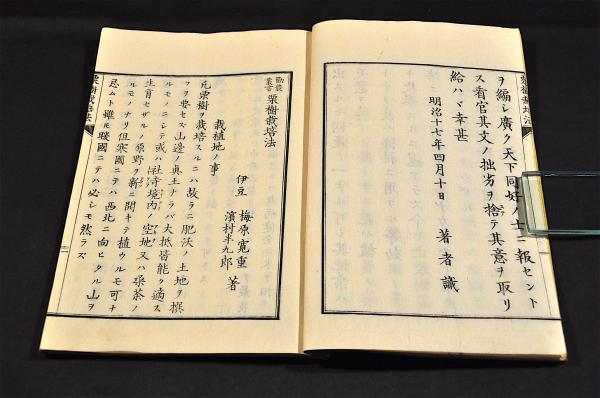 ヲ編シ廣ク天下同好ノ士ニ報セント
ス看官其文ノ拙劣ヲ捨テ其意ヲ取リ
給ハヾ幸甚
明治十七年四月十日 著者識
勸農叢書 栗樹栽培法
伊豆 梅原寬重
濱村半九郎 著
栽植地ノ事
凡栗樹ヲ栽培スルニハ故ラニ肥沃ノ土地ヲ撰
フヲ要セス山邊ノ眞土ナラバ大抵皆能ク適ス
ルモノニシテ或ハ社寺境内ノ空地又ハ桑茶ノ
生育セザルノ原野ヲ新ニ開キテ植ウルモ可ナ
ルモノナリ但寒國ニテハ西北ニ向ヒタル山ヲ
忌ムト雖モ暖國ニテハ必シモ然ラズ
栗樹栽培法